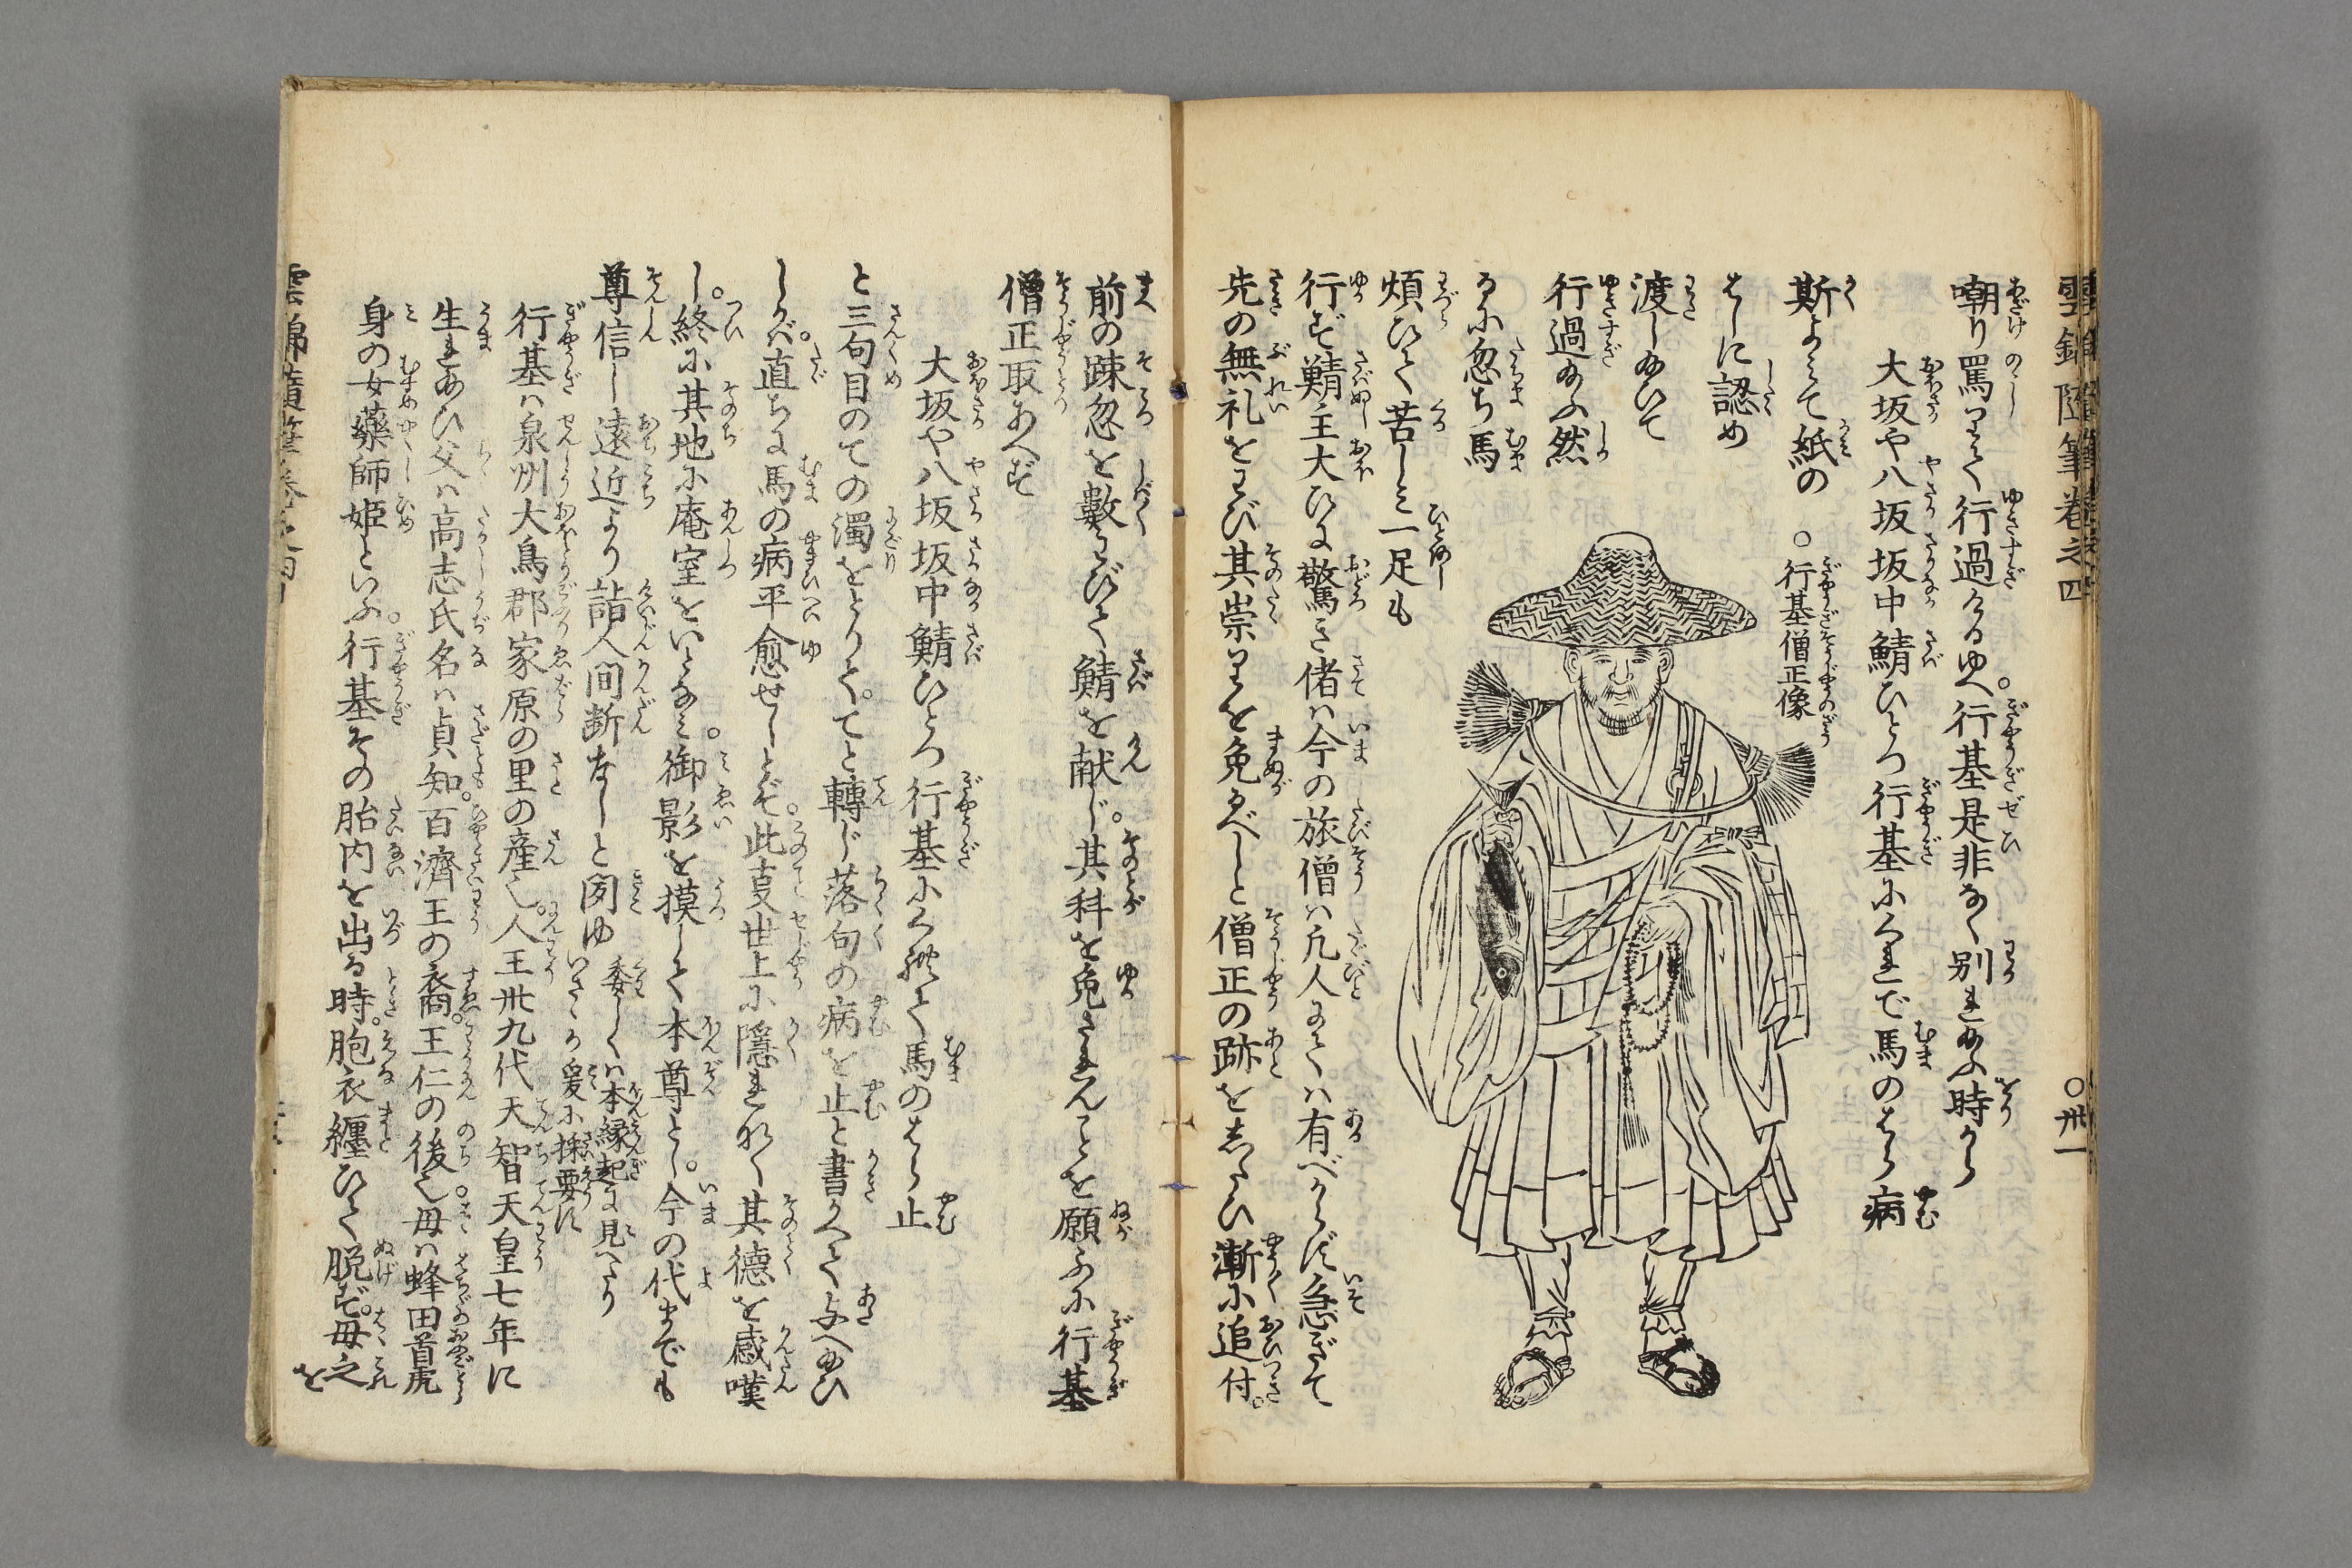 雲錦随筆巻之四 〇卅一
嘲り罵りて行過けるゆへ。行基是非なく別れ給ふ時から
大坂や八坂坂中鯖ひとつ行基にくれで馬のはら病
〇行基僧正像
斯よみて紙の
はしに認め
渡し給ひて
行過給ふ然
るに忽ち馬
煩ひて苦しミ一足も
行ず鯖主大ひに驚き偖ハ今の旅僧ハ凡人にてハ有べからず急ぎて
先の無礼をわび其祟りを免るべしと僧正の跡をしたひ漸に追付。
前の疎忽を數わびて鯖を献じ。其科を免されんことを願ふに行基
僧正取あへず
大坂や八坂坂中鯖ひとつ行基にくれて馬のはら止
と三句目のての濁をとりて。てと轉じ落句の病を止と書かへて与へ給ひ
しかバ。直ちに馬の病平愈せしとぞ。此夏世上に隠れなく其徳を感嘆
し。終に其地に庵室をいとなミ。御影を摸して本尊とし。今の代までも
尊信し遠近より詣人間断なしと聞ゆ
委しくハ本縁起に見へたり
いさゝか爰に採要に
行基ハ泉州大鳥郡家原の里の産也。人王卅九代天智天皇七年に
生れ給ひ父ハ高志氏名ハ貞知。百濟王の裔。王仁の後也。母ハ蜂田首虎
身の女藥師姫といふ。行基その胎内を出る時。胞衣纏ひて脱ず。母之を
雲錦随筆巻之四